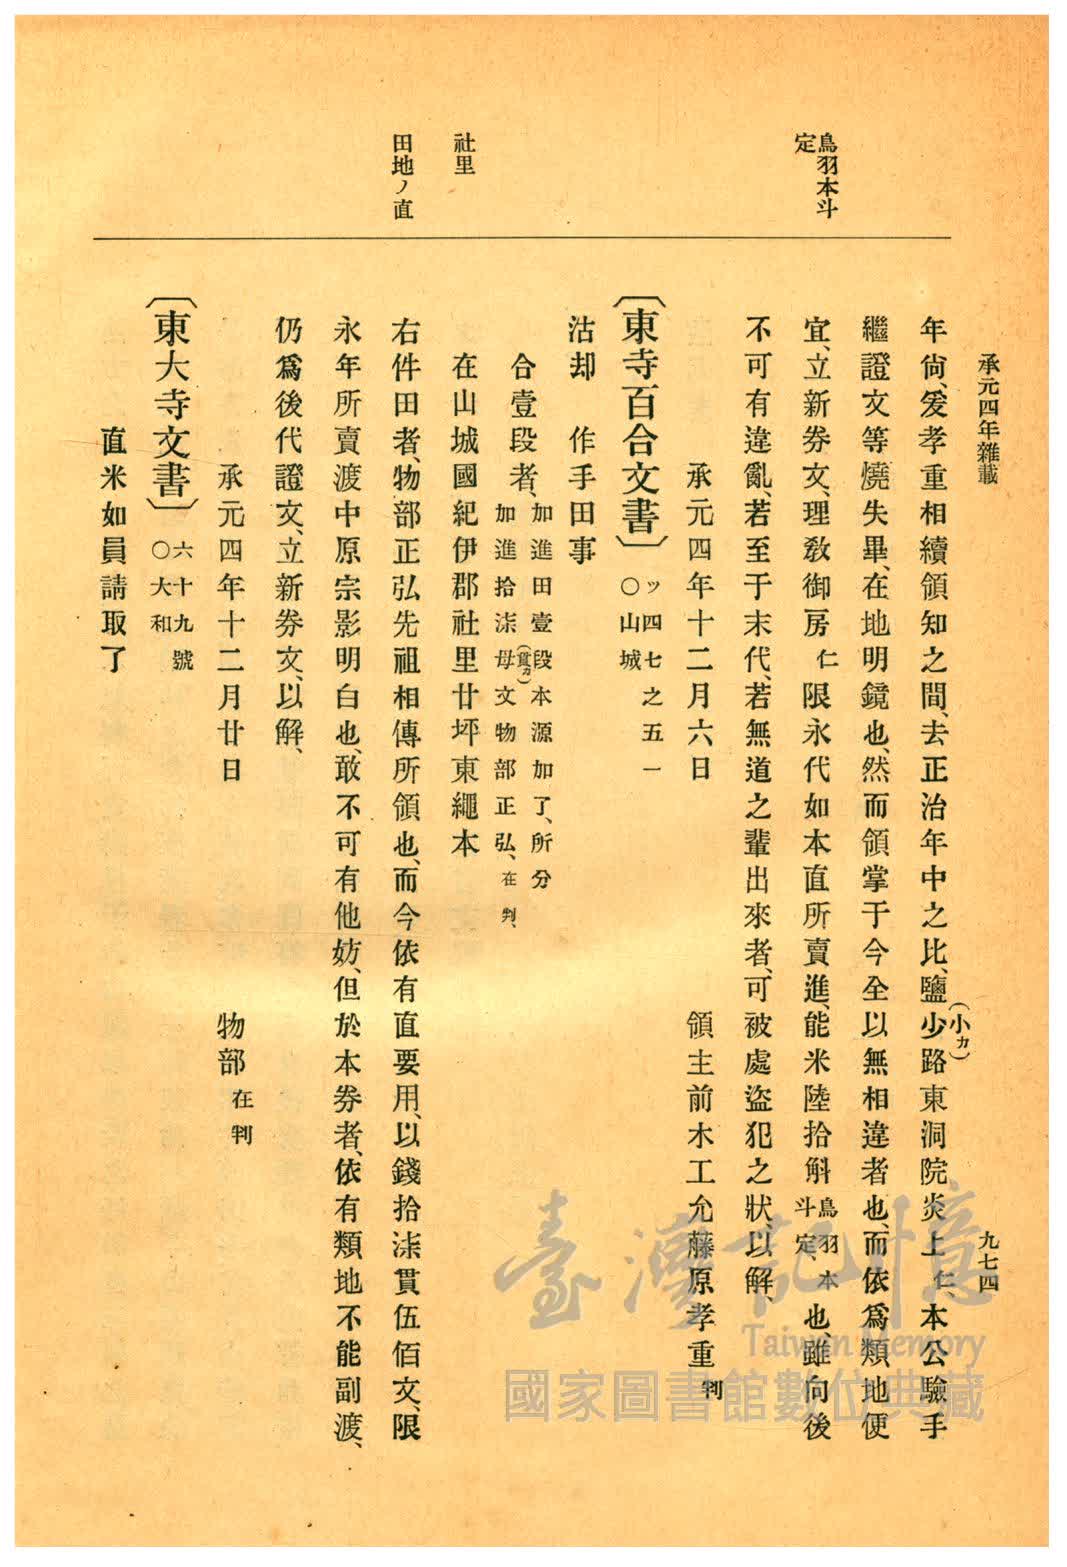 承元四年雜載
九七四
鳥羽本斗
定
社里
田地ノ直
年尙、爰孝重相續領知之間、去正治年中之比、鹽少(小カ)路東洞院炎上仁、本公驗手
繼證文等燒失畢、在地明鏡也、然而領掌于今全以無相違者也、而依爲類地便
宜、立新券文、理敎御房仁限永代如本直所賣進、能米陸拾斛鳥羽本斗定、也、雖向後
不可有違亂、若至于末代、若無道之輩出來者、可被處盜犯之狀、以解、
承元四年十二月六日　領主前木工允藤原孝重判
〔東寺百合文書〕ッ四七之五一
〇山城
沽却　作手田事
合壹段者、加進田壹段本源加了、所分
加進拾柒母(貫カ)文物部正弘、在判、
在山城國紀伊郡社里廿坪東繩本
右件田者、物部正弘先祖相傳所領也、而今依有直要用、以錢拾柒貫伍佰文、限
永年所賣渡中原宗影明白也、敢不可有他妨、但於本券者、依有類地不能副渡、
仍爲後代證文、立新券文、以解、
承元四年十二月廿日　物部在判
〔東大寺文書〕六十九號
〇大和
直米如員請取了
臺灣記憶
Taiwan Memory
國家圖書館數位典藏